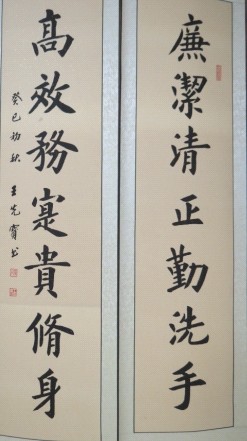 廉潔清正勤洗手
高效務寔貴脩身
癸巳初秋 王先寶书